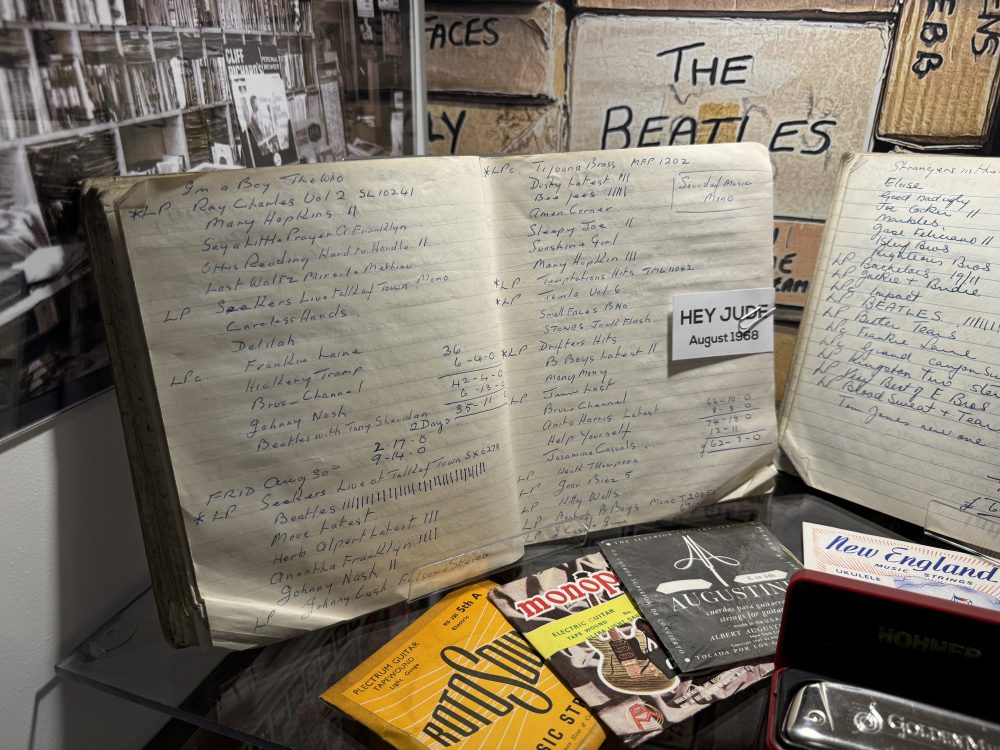 CLIFF
RICHARD'S
FACES
LY
THE
BEATLES
EBB
I'm a Boy The Who
*LP Ray Charles Vol 2 SL 10241
Mary Hopkins II
Say a Little Prayer A Franklyn
Otis Reading Hard to Handle II
Last Waltz Miralle Mathieu
LP Seekers Live talk of Town Mono
Careless Hands.
Delilah
LPc Frankie Laine 36
Healtey Tramp 6-4-0
Bruce Channel 42-4-0
Johnny Nash 6-13-0
Beatles with Tony Sheridan 35-11
2 Days
2-17-0
FRID Aug 30 9-14-0
* LP Seekers Live at Talk of Town SX 6278
Beatles
Move Latest
Herb Alpert Latest III
Areatha Franklyn IIII
Johnny Nash II
LP Johnny Cash Folsome Stereo
*LPc Tijuana Brass MFP 1202
Dusty Latest III
Bee Jees IIII
Amen Corner
Sound of Music
Mono
Sleepy Joe II
Sunshine Girl
Mary Hopkin III
*LP Temptations Hits TML 11042
*LP Tamla Vol 6
Small Faces
STONES Jack Flash
*LP Drifters Hits
B Boys Latest II
Mony Mony
LP James Last
Bruce Channel
Anita Harris Latest
Help Yourself
Jasamine Casuals.
LP Hank Thompson
LP Joan Biez 5
LP Kitty Wells
LP Best of B Boys Mono T 20856
LP
74-18-0
12-11
£62-7-0
HEY JUDE
August 1968
Strangers in the
Eloise
Good
Joe Cocker II
Marbles
Jose Feliciano II
Righteous Bros
LP Bachelors 19/11
LP Jackie & Bridie
LP Impact
LP BEATLES
LP Frankie Laine
LP Grand Canyon Su
LP Kingston Two
LP Very Best of E Bros
LP Blood Sweat & Tears
Tom Jones new one
RS 225 5th A
Electric
PLECTRUM GUITAR
TAPEWOUND
Light Gauge
ROTOSOUND
MUSIC STR
monop
ELECTRIC GUITAR
TAPE WOUND
THE SUPERIOR
E or 6th
AUGUSTINE
cuerdas para guitarra
strings for guitar
Made in U.S.A.
ALBERT AUGUSTINE
TOCADA POR LOS
New England
MUSIC STRINGS
UKULELE
HOHNER
GOLDEN M